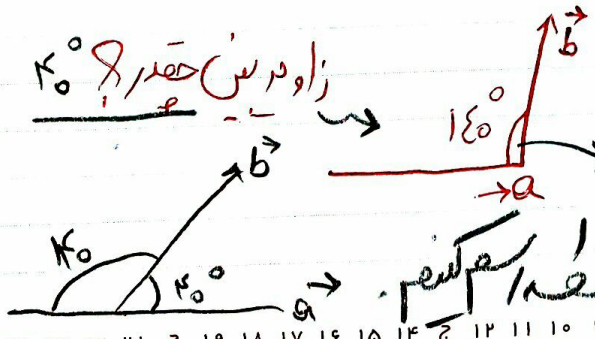 زاویه بین چقدر؟ ۴۰°
b
۱۴۰°
a
b
۱۴۰
۴۰°
a
رسم کنیم.
۱۹ ۱۸ ۱۷ ۱۶ ۱۵ ۱۴ ج ۱۲ ۱۱ ۱۰